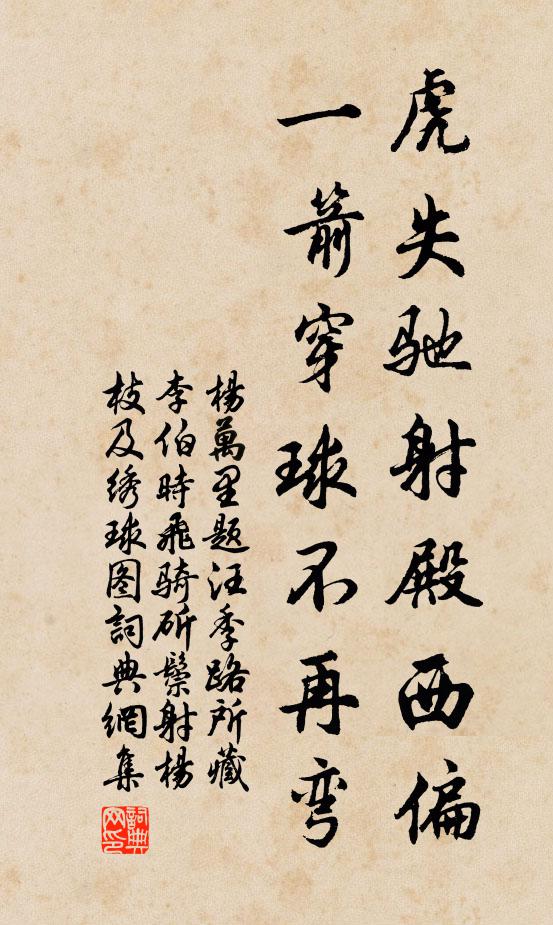 虎失驰射殿西偏
一箭穿球不再弯
楊萬里題汪季路所藏
李伯時飛骑斫鬃射楊
枝及绣球图詞典網集
詞典网印